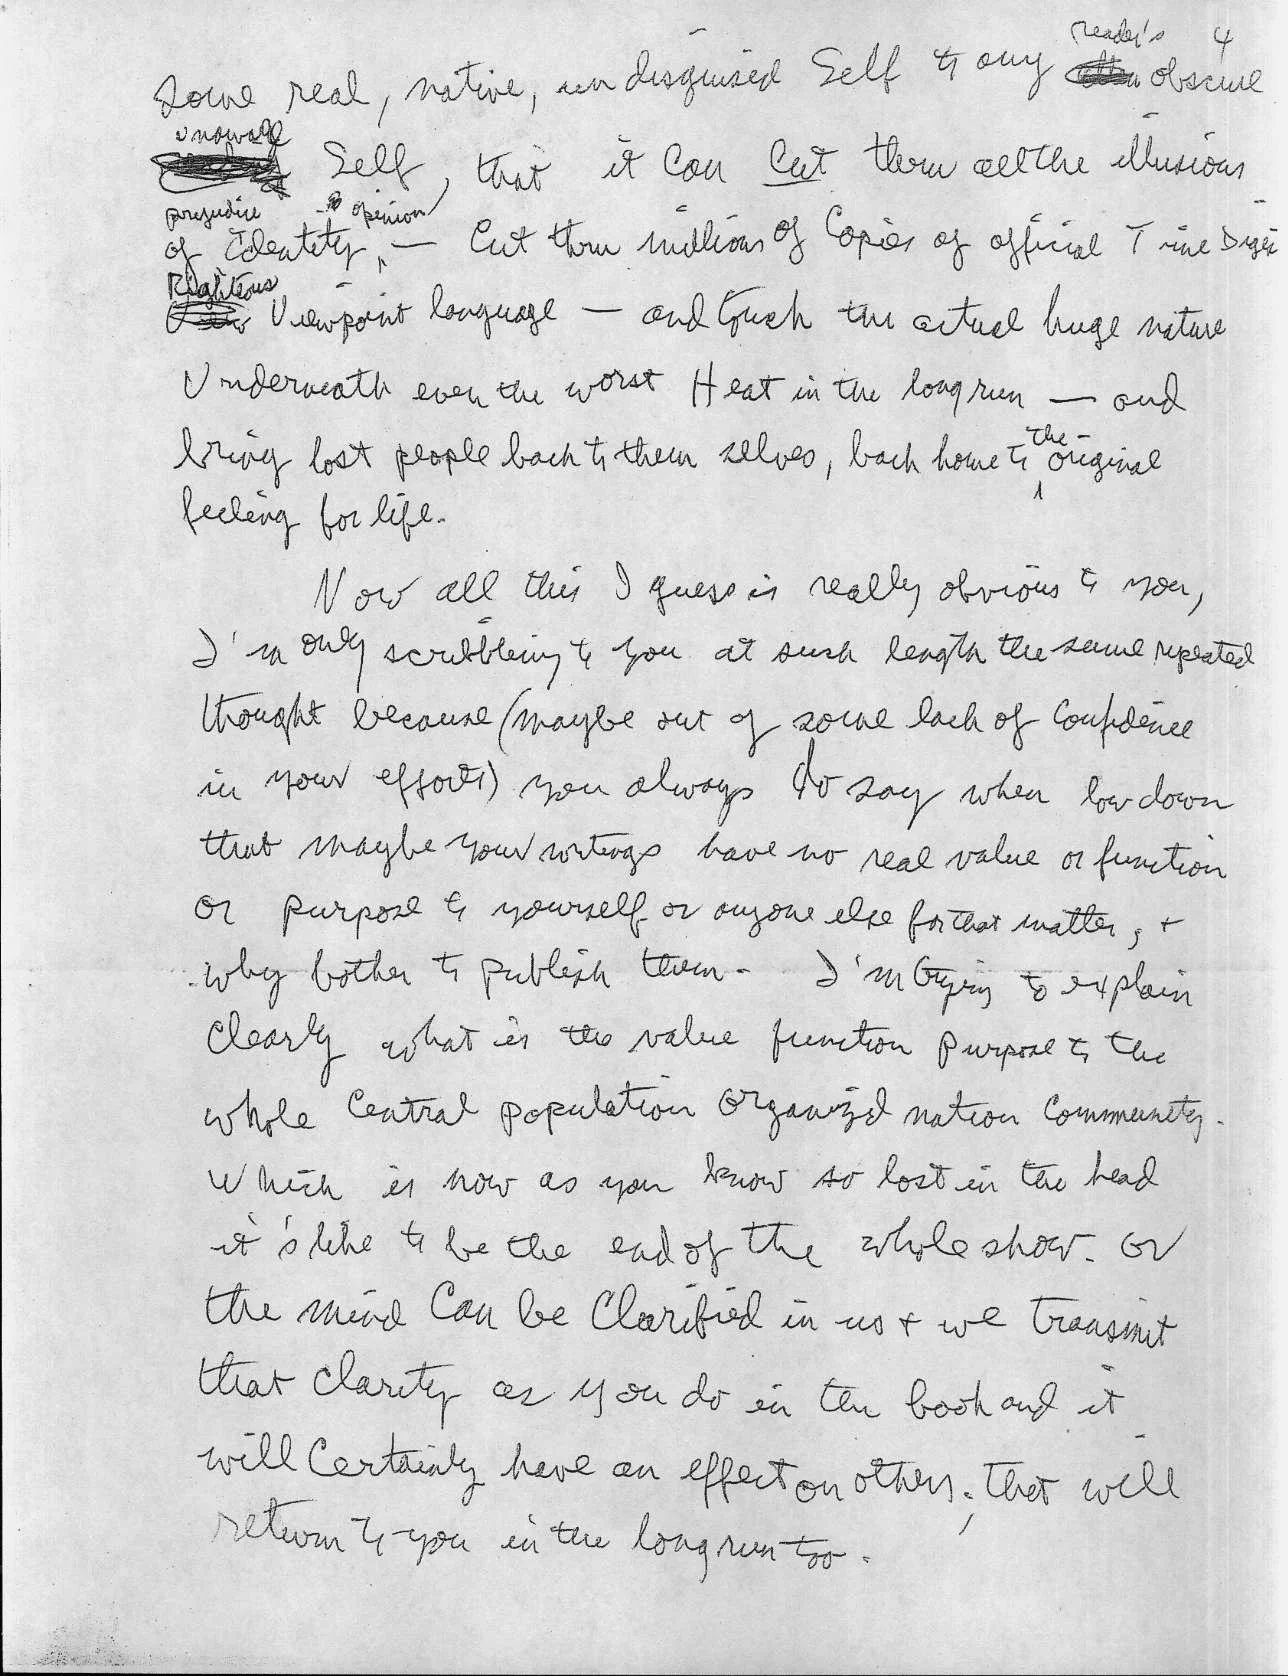 reader's 4
some real, native, undisguised Self to any obscure
unaware
Self, that it can cut thru all the illusions
prejudice & opinion
of Identity, — cut thru millions of copies of official Time Digest
Righteous
Viewpoint language — and touch the actual huge nature
Underneath even the worst Heat in the long run — and
the
bring lost people back to them selves, back home to original
feeling for life.
Now all this I guess is really obvious to you,
I'm only scribbling to you at such length the same repeated
thought because (maybe out of some lack of confidence
in your efforts) you always do say when low down
that maybe your writings have no real value or function
or purpose to yourself or anyone else for that matter, +
why bother to publish them. I'm trying to explain
clearly what is the value function purpose to the
whole Central population organized nation community.
Which is now as you know so lost in the head
it's like to be the end of the whole show. Or
the mind can be clarified in us + we transmit
that clarity as you do in the book and it
will certainly have an effect on others, that will
return to you in the long run too.